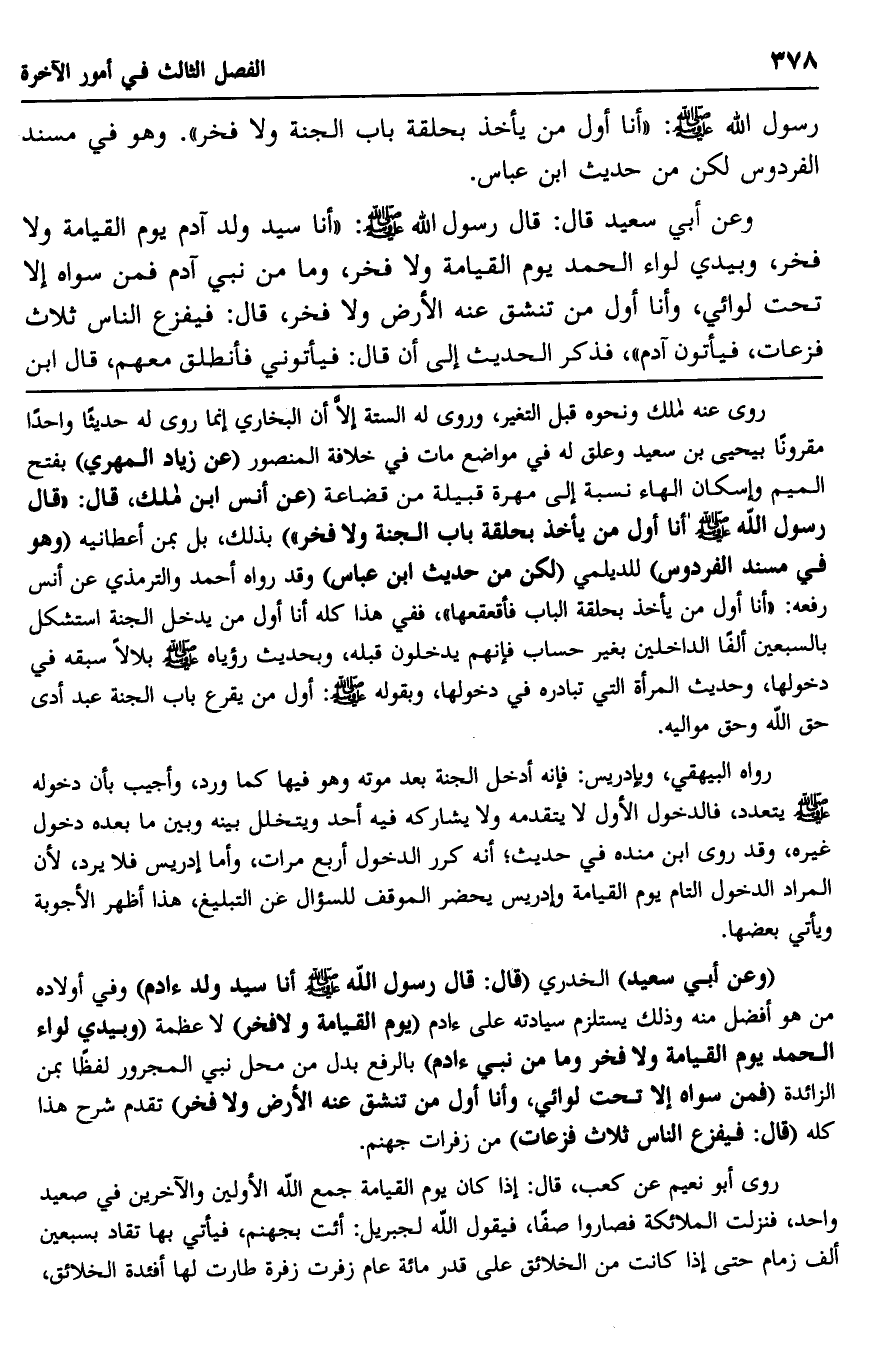 ٣٧٨ الفصل الثالث في أمور الآخرة
رسول الله ﷺ: «أنا أول من يأخذ بحلقة باب الجنة ولا فخر». وهو في مسند
الفردوس لكن من حديث ابن عباس.
وعن أبي سعيد قال: قال رسول الله ﷺ: «أنا سيد ولد آدم يوم القيامة ولا
فخر، وبيدي لواء الحمد يوم القيامة ولا فخر، وما من نبي آدم فمن سواه إلا
تحت لوائي، وأنا أول من تنشق عنه الأرض ولا فخر، قال: فيفزع الناس ثلاث
فزعات، فيأتون آدم»، فذكر الحديث إلى أن قال: فيأتوني فأنطلق معهم، قال ابن
روى عنه مٰلك ونحوه قبل التغير، وروى له الستة إلاَّ أن البخاري إنما روى له حديثًا واحدًا
مقرونًا بيحيى بن سعيد وعلق له في مواضع مات في خلافة المنصور (عن زياد المهري) بفتح
الميم وإسكان الهاء نسبة إلى مهرة قبيلة من قضاعة (عن أنس ابن مٰلك، قال: «قال
رسول اللّه ﷺ أنا أول من يأخذ بحلقة باب الجنة ولا فخر») بذلك، بل بمن أعطانيه (وهو
في مسند الفردوس) للديلمي (لكن من حديث ابن عباس) وقد رواه أحمد والترمذي عن أنس
رفعه: «أنا أول من يأخذ بحلقة الباب فأقعقعها»، ففي هذا كله أنا أول من يدخل الجنة استشكل
بالسبعين ألفًا الداخلين بغير حساب فإنهم يدخلون قبله، وبحديث رؤياه ﷺ بلالاً سبقه في
دخولها، وحديث المرأة التي تبادره في دخولها، وبقوله ﷺ: أول من يقرع باب الجنة عبد أدى
حق اللّه وحق مواليه.
رواه البيهقي، وبإدريس: فإنه أدخل الجنة بعد موته وهو فيها كما ورد، وأجيب بأن دخوله
ﷺ يتعدد، فالدخول الأول لا يتقدمه ولا يشاركه فيه أحد ويتخلل بينه وبين ما بعده دخول
غيره، وقد روى ابن منده في حديث؛ أنه كرر الدخول أربع مرات، وأما إدريس فلا يرد، لأن
المراد الدخول التام يوم القيامة وإدريس يحضر الموقف للسؤال عن التبليغ، هذا أظهر الأجوبة
ويأتي بعضها.
(وعن أبي سعيد) الخدري (قال: قال رسول اللّه ﷺ أنا سيد ولد ءادم) وفي أولاده
من هو أفضل منه وذلك يستلزم سيادته على ءادم (يوم القيامة و لافخر) لا عظمة (وبيدي لواء
الحمد يوم القيامة ولا فخر وما من نبي ءادم) بالرفع بدل من محل نبي المجرور لفظًا بمن
الزائدة (فمن سواه إلا تحت لوائي، وأنا أول من تنشق عنه الأرض ولا فخر) تقدم شرح هذا
كله (قال: فيفزع الناس ثلاث فزعات) من زفرات جهنم.
روى أبو نعيم عن كعب، قال: إذا كان يوم القيامة جمع اللّه الأولين والآخرين في صعيد
واحد، فنزلت الملائكة فصاروا صفًا، فيقول اللّه لجبريل: أئت بجهنم، فيأتي بها تقاد بسبعين
ألف زمام حتى إذا كانت من الخلائق على قدر مائة عام زفرت زفرة طارت لها أفئدة الخلائق،